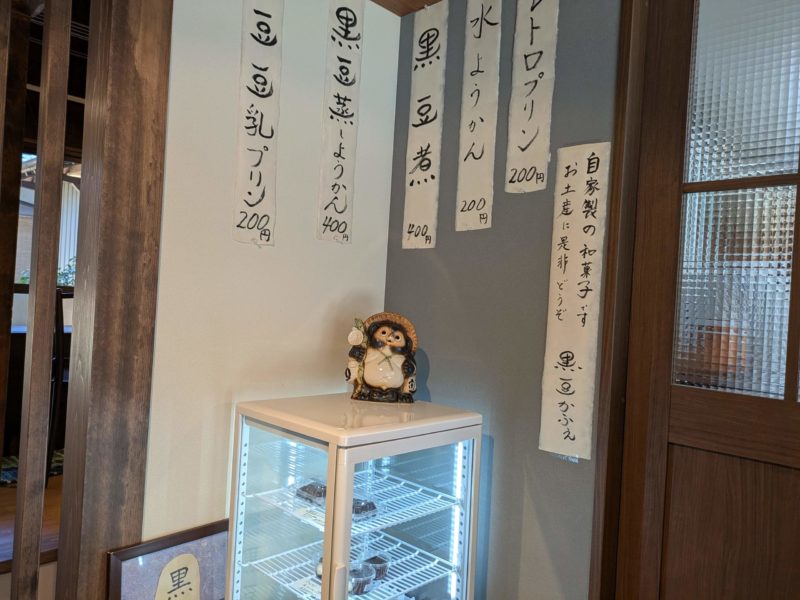 トロプリン
200円
水ようかん
200円
黒豆煮
400円
黒豆蒸しようかん
400円
豆豆乳プリン
200円
自家製の和菓子です
お土産に是非どうぞ
黒豆かふぇ
黒